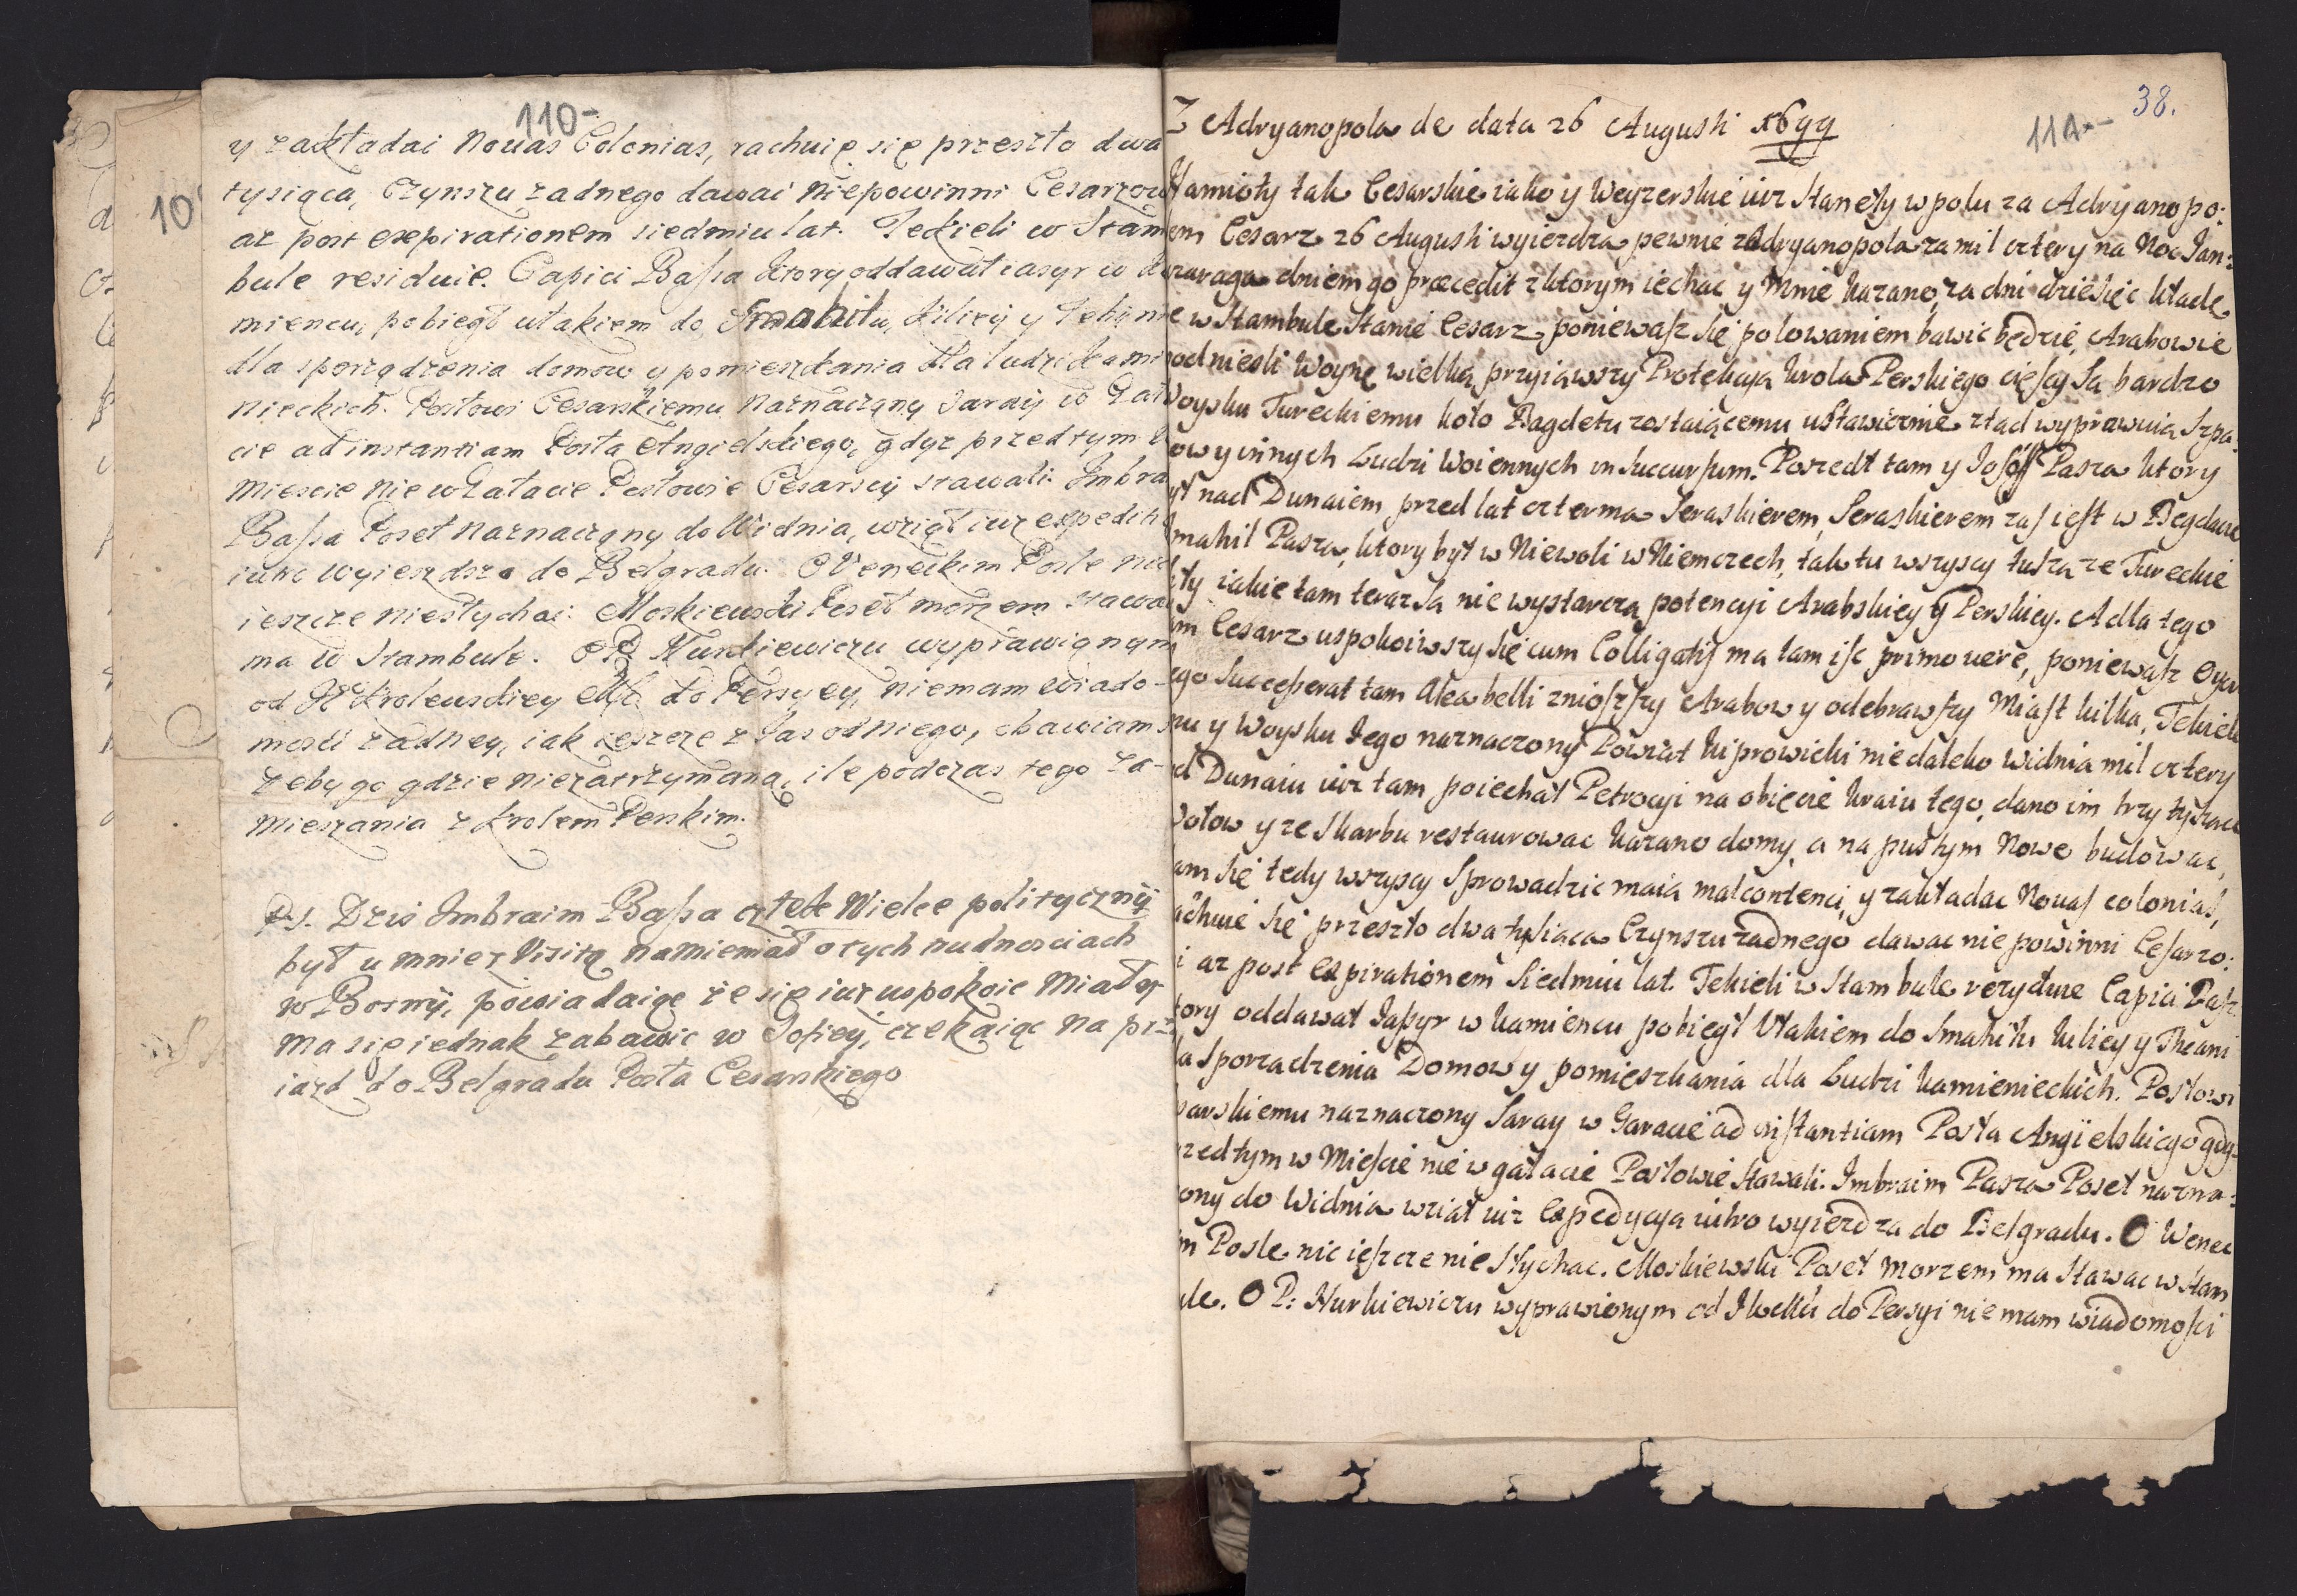 110-
y zakładac Nouas Colonias, rachuię się przeszło dwa
tysiąca, Czynszu zadnego dawac niepowinni Cesarzow
az post exspirationem siedmiu lat. Tekieli w Stam
bule residuie. Capici Bassa ktory oddawał iasyr w Ka
miencu, pobiegł ułakiem do Smahiłu, Kiliey y Tehinie
dla sporządzenia domow y pomieszkania dla ludzi Kamie
nieckich. Posłowi Cesarskiemu naznaczony Saray w Gała
cie ad instantiam Posła Angielskiego, gdyz przedtym w
Miescie nie w Gałacie Posłowie Cesarscy stawali. Imbra
Bassa Poseł naznaczony do Widnia, wziął iuz expeditią
iutro wyieszdsza do Belgradu. O Veneckim Posle nic
ieszcze niesłychac. Moskiewski Poseł morzem stawac
ma w Stambule. O P. Hurkiewiczu wyprawionym
od JKrolewskiey Mci do Persyey, niemam wiado-
mosci zadney, iak ieszcze z Jas od niego, obawiam s
zeby go gdzie niezatrzymano, ile podczas tego za-
mieszania z Krolem Perskim.
P.S. Dzis Imbraim Bassa człek Wielce polityczny
był u mnie z Visitą namieniał o tych nudnosciach
w Bosnij, powiadaiąc ze się iuz uspokoic miały
ma się iednak zabawic w Sofiey, czekaiąc na prz
iazd do Belgradu Posła Cesarskiego
10
38.
111.-
Z Adryanopola de data 26 Augusti 1699
Namioty tak Cesarskie iako y Weyzerskie iuz stanęły w polu za Adryanopo:
em Cesarz 26 Augusti wyiezdza pewnie z Adryanopola za mil cztery na Noc Jan:
czaraga dniem go præcedit z ktorym iechac y mnie kazano, za dni dziesięc kłade
e w Stambule stanie Cesarz, poniewasz się polowaniem bawic będzie, Arabowie
podniesli Woynę wielką przyiąwszy Protekcyą krola Perskiego ciężcy są bardzo
Woysku Tureckiemu koło Bagdetu zostaiącemu, ustawicznie ztąd wyprawuią Szpa
ow y innych Ludzi Woiennych in succursum. Poszedł tam y Josoff Pasza ktory
ył nad Dunaiem przed lat czterma Seraskierem, Seraskierem zas iest w Begdacie
Smahil Pasza, ktory był w Niewoli w Niemczech, tak tu wszyscy tuszą ze Tureckie
iły iakie tam teraz są nie wystarczą potencyi Arabskiey y Perskiey. A dla tego
am Cesarz uspokoiwszy się cum Colligatis ma tam isc primo vere, poniewasz Oyca
ego successerat tam Alea belli zniozszy Arabow y odebrawszy Miast kilka, Tekiele
mu y Woysku Jego naznaczony Powiat kiprowicki niedaleko Widnia mil cztery
od Dunaiu iuz tam poiechał Petroczi na obięcie kraiu tego, dano im trzy tysiące
Wołow y ze Skarbu restaurowac kazano domy, a na pustym Nowe budowac,
am się tedy wszyscy sprowadzic maią malcontenci, y zakładac Nouas colonias,
achuie się przeszło dwa tysiąca Czynszu zadnego dawac niepowinni Cesarzo:
i az post expirationem Siedmiu lat. Tekieli w Stambule rezyduie Capici Pasz
tory oddawał Jassyr w kamiencu pobiegł Ułakiem do Smahiłu Kiliey y Theani
la Sporządzenia Domow y pomieszkania dla Ludzi kamienieckich. Posłowi
sarskiemu naznaczony Saray w Garacie ad instantiam Posła Angielskiego gdy
rzedtym w Miescie nie w gałacie Posłowie stawali. Imbraim Pasza Poseł nazna:
zony do Widnia wziął iuz Expedycyą iutro wyiezdza do Belgradu. O Wenec
im Posle nic ieszcze nie słychac. Moskiewski Poseł Morzem ma stawac w Stam
ule. O P: Hurkiewiczu wyprawionym od JkMci do Persyi nie mam wiadomosci